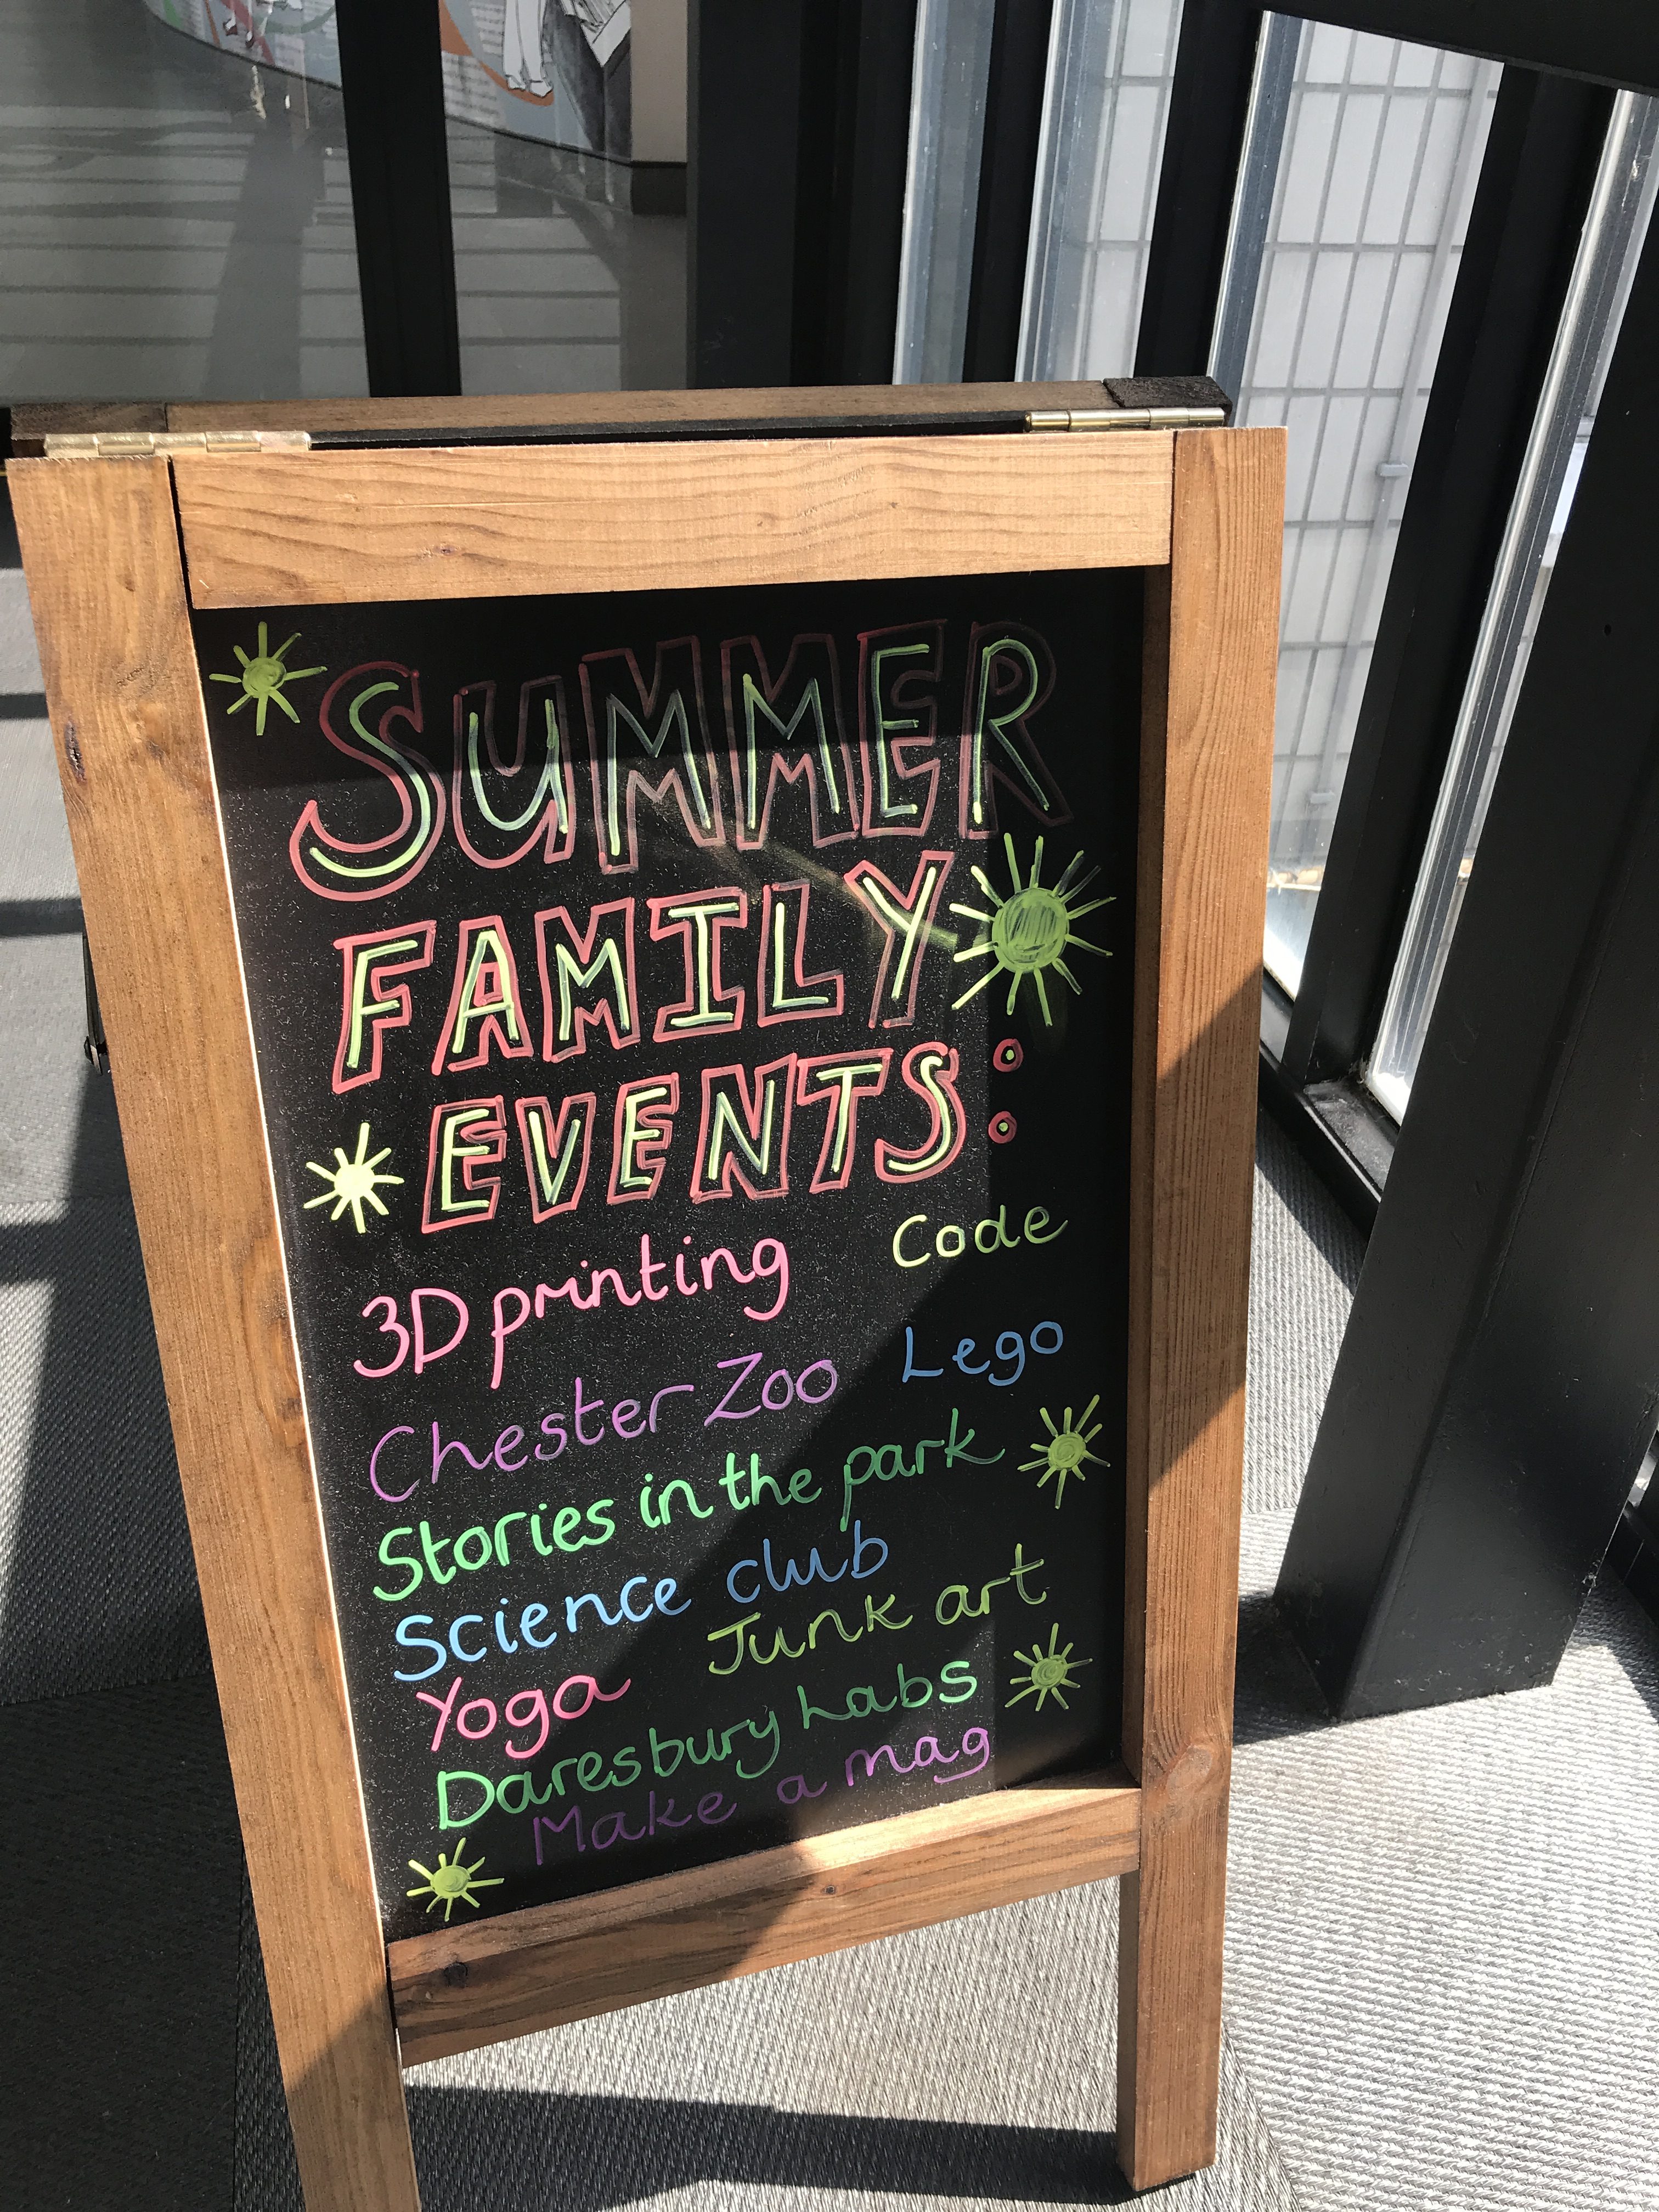 SUMMER
FAMILY
EVENTS:
3D printing Code
Chester Zoo Lego
Stories in the park
Science club
Yoga Junk art
Daresbury Labs
Make a mag